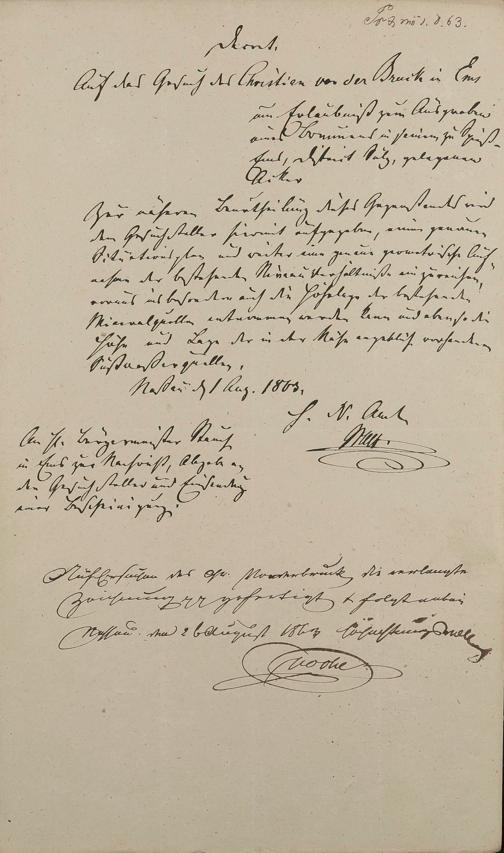 Decret.
Auf das Gesuch des Christian von der Bruck in Ems
um Erlaubniß zum Ausgraben
eines Brunnens in seinem zu Spieß-
Ems, District Sulz, gelegenen
Acker
Zur näheren Beurtheilung dieses Gegenstandes wird
dem Gesuchsteller hiermit aufgegeben, einen genauen
Situationsplan und weiter eine genaue geometrische Auf-
nahme der bestehenden Niveauverhältnisse einzureichen,
woraus insbesondere auch die Höhelage der bestehenden
Mineralquellen entnommen werden kann und ebenso die
Höhe und Lage der in der Nähe angeblich vorhandenen
Süßwasserquellen.
Nassau d 1 Aug. 1863.
H. N. Amt
An H. Bürgermeister
in Ems zur Nachricht, Abgabe an
den Gesuchsteller und Einsendung
einer Bescheinigung.
Auf Ersuchen des Chr. Vonderbruck die verlangte
Zeichnung gefertigt & folgt anbei
Nassau den 26 August 1863